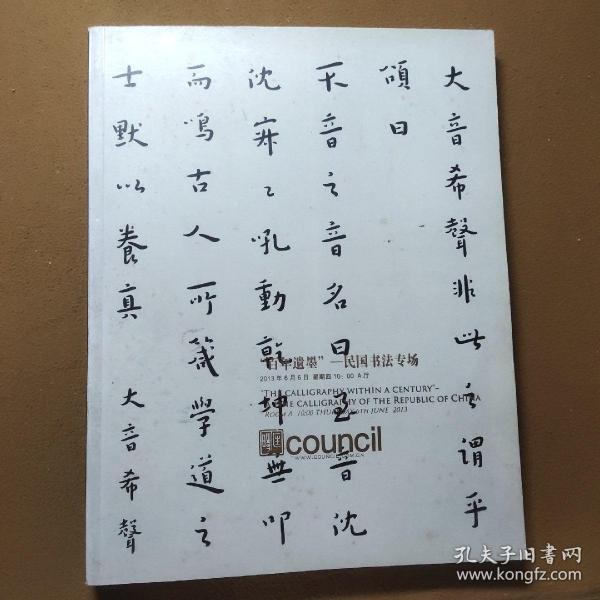 大音希聲非此之謂乎
頌曰
不音之音名曰至音沈
沈寂〻吼動乾坤無叩
而鳴古人所箴學道之
士默以養真 大音希聲
"百年遗墨"—民国书法专场
2013年6月6日 星期四 10:00 A厅
"THE CALLIGRAPHY WITHIN A CENTURY"-
THE CALLIGRAPHY OF THE REPUBLIC OF CHINA
ROOM A 10:00 THURSDAY 6TH JUNE 2013
council
WWW.COUNCIL.COM.CN
孔夫子旧书网
www.kongfz.com